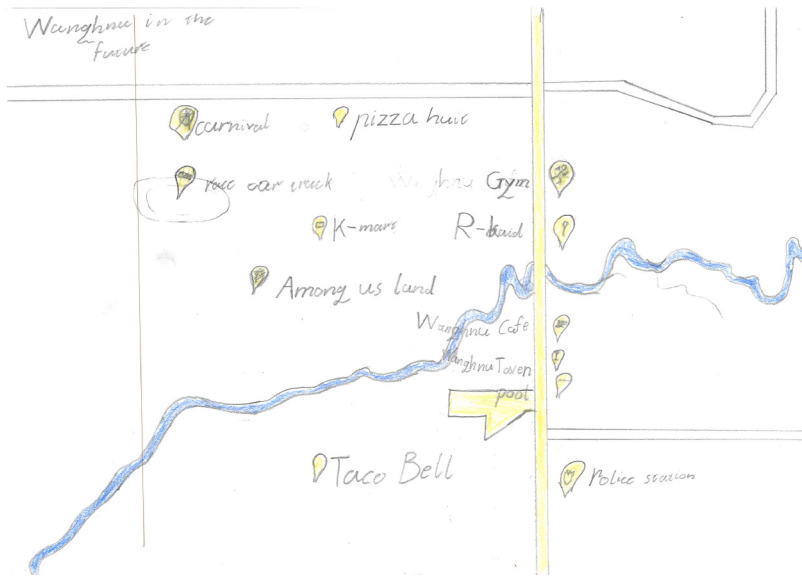 Wanghnu in the
future
carnival
pizza huit
race car track
Wanghnu Gym
K-mart
R-kaid
Among us land
Wanghnu Cafe
Wanghnu Taven
pool
Taco Bell
Police station